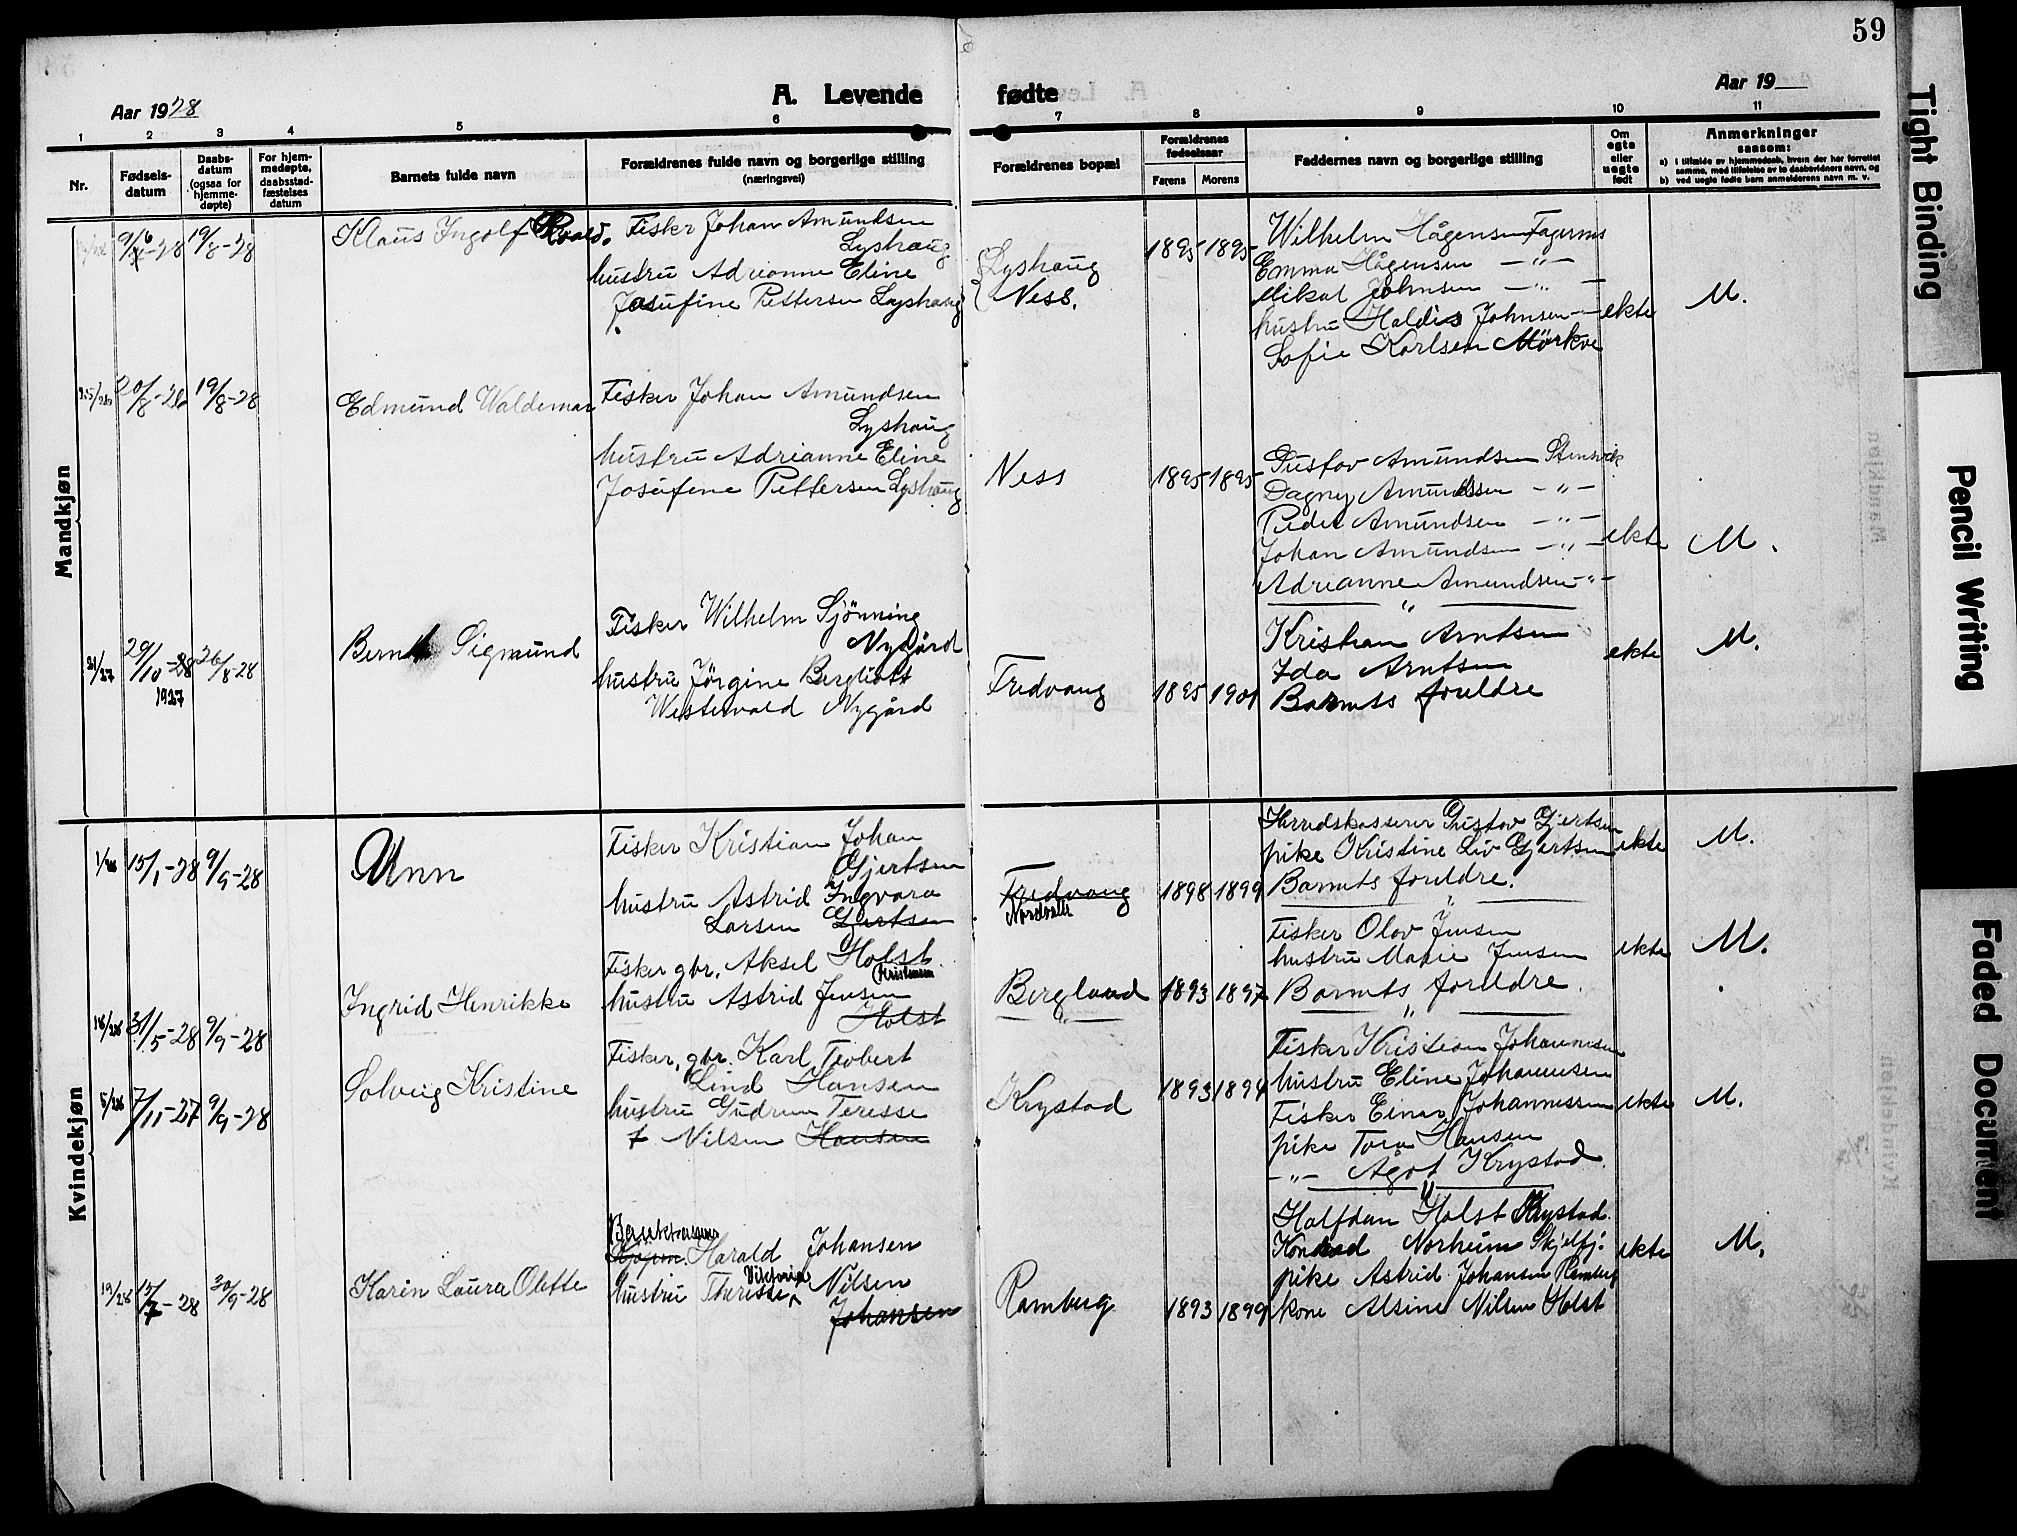 59
Aar 1928
A. Levende fødte
Aar 19
1 2 3 4 5 6 7 8 9 10 11
Nr.
Fødsels-
datum
Daabs-
datum
(ogsaa for
hjemme-
døpte)
For hjem-
medøpte,
daabsstad-
fæstelses
datum
Barnets fulde navn
Forældrenes fulde navn og borgerlige stilling
(næringsvei)
Forældrenes bopæl
Forældrenes
fødselsaar
Farens Morens
Faddernes navn og borgerlige stilling
Om
egte
eller
uegte
født
Anmerkninger
saasom:
a) i tilfælde av hjemmedaab, hvem der har forrettet
samme, med tilføielse av to daabsvidners navn, og
b) ved uegte fødte barn anmelderens navn m. v.
Mandkjøn
9/6-28 19/8-28
Klaus Ingolf Roald.
Fisker Johan Amundsen
Lyshaug
hustru Adrianne Eline
Josefine Pettersen Lyshaug
Lyshaug
Ness.
1895 1895
Wilhelm Hågensen Fagernes
Emma Hågensen — " —
Mikal Johnsen — " —
hustru Haldis Johnsen —
Sofie Karlsen Mørkve
ekte
M.
20/8-28 19/8-28
Edmund Waldemar
Fisker Johan Amundsen
Lyshaug
hustru Adrianne Eline
Josefine Pettersen Lyshaug
Ness
1895 1895
Gustav Amundsen Stensvik
Dagny Amundsen — " —
Peder Amundsen — " —
Johan Amundsen — " —
Adrianne Amundsen — " —
ekte
M.
21/27 29/10-28 26/8-28
1927
Bernt Sigmund
Fisker Wilhelm Sjönning
Nygård
hustru Jörgine Bergliott
Westervald Nygård
Fredvang
1895 1901
Kristian Arntsen
Ida Arntsen
Barnets foreldre
ekte
M.
Kvindekjøn
15/1-28 9/9-28
Unn
Fisker Kristian Johan
Gjertsen
hustru Astrid Ingvara
Larsen Gjertsen
Fredvang
1898 1899
Herredskasserer Gustav Gjertsen
pike Kristine Liv Gjertsen
Barnets foreldre.
ekte
M.
31/5-28 9/9-28
Ingrid Henrikke
Fisker gbr. Aksel Holst
Kristensen
hustru Astrid Jensen
Holst
Bergland
1893 1897
Fisker Olav Jensen
hustru Marie Jensen
Barnets foreldre.
ekte
M.
5/28 7/11-27 9/9-28
Solveig Kristine
Fisker, gbr. Karl Teobert
Lind Hansen
hustru Gudrun Teresse
f Nilsen Hansen
Krystad
1893 1894
Fisker Kristian Johannesen
hustru Eline Johannesen
Fisker Einar Johannessen
pike Tora Hansen
— " — Ågot Krystad.
ekte
M.
19/28 15/7-28 30/9-28
Karin Laura Olette
Harald Johansen
Viktoria
hustru Theresse Nilsen
Johansen
Ramberg
1893 1899
Halfdan Holst Krystad.
Konrad Norheim Skjelfj.
pike Astrid Johansen Ramberg
kone Alsine Nilsen Holst
ekte
M.
Tight Binding
Pencil Writing
Faded Document